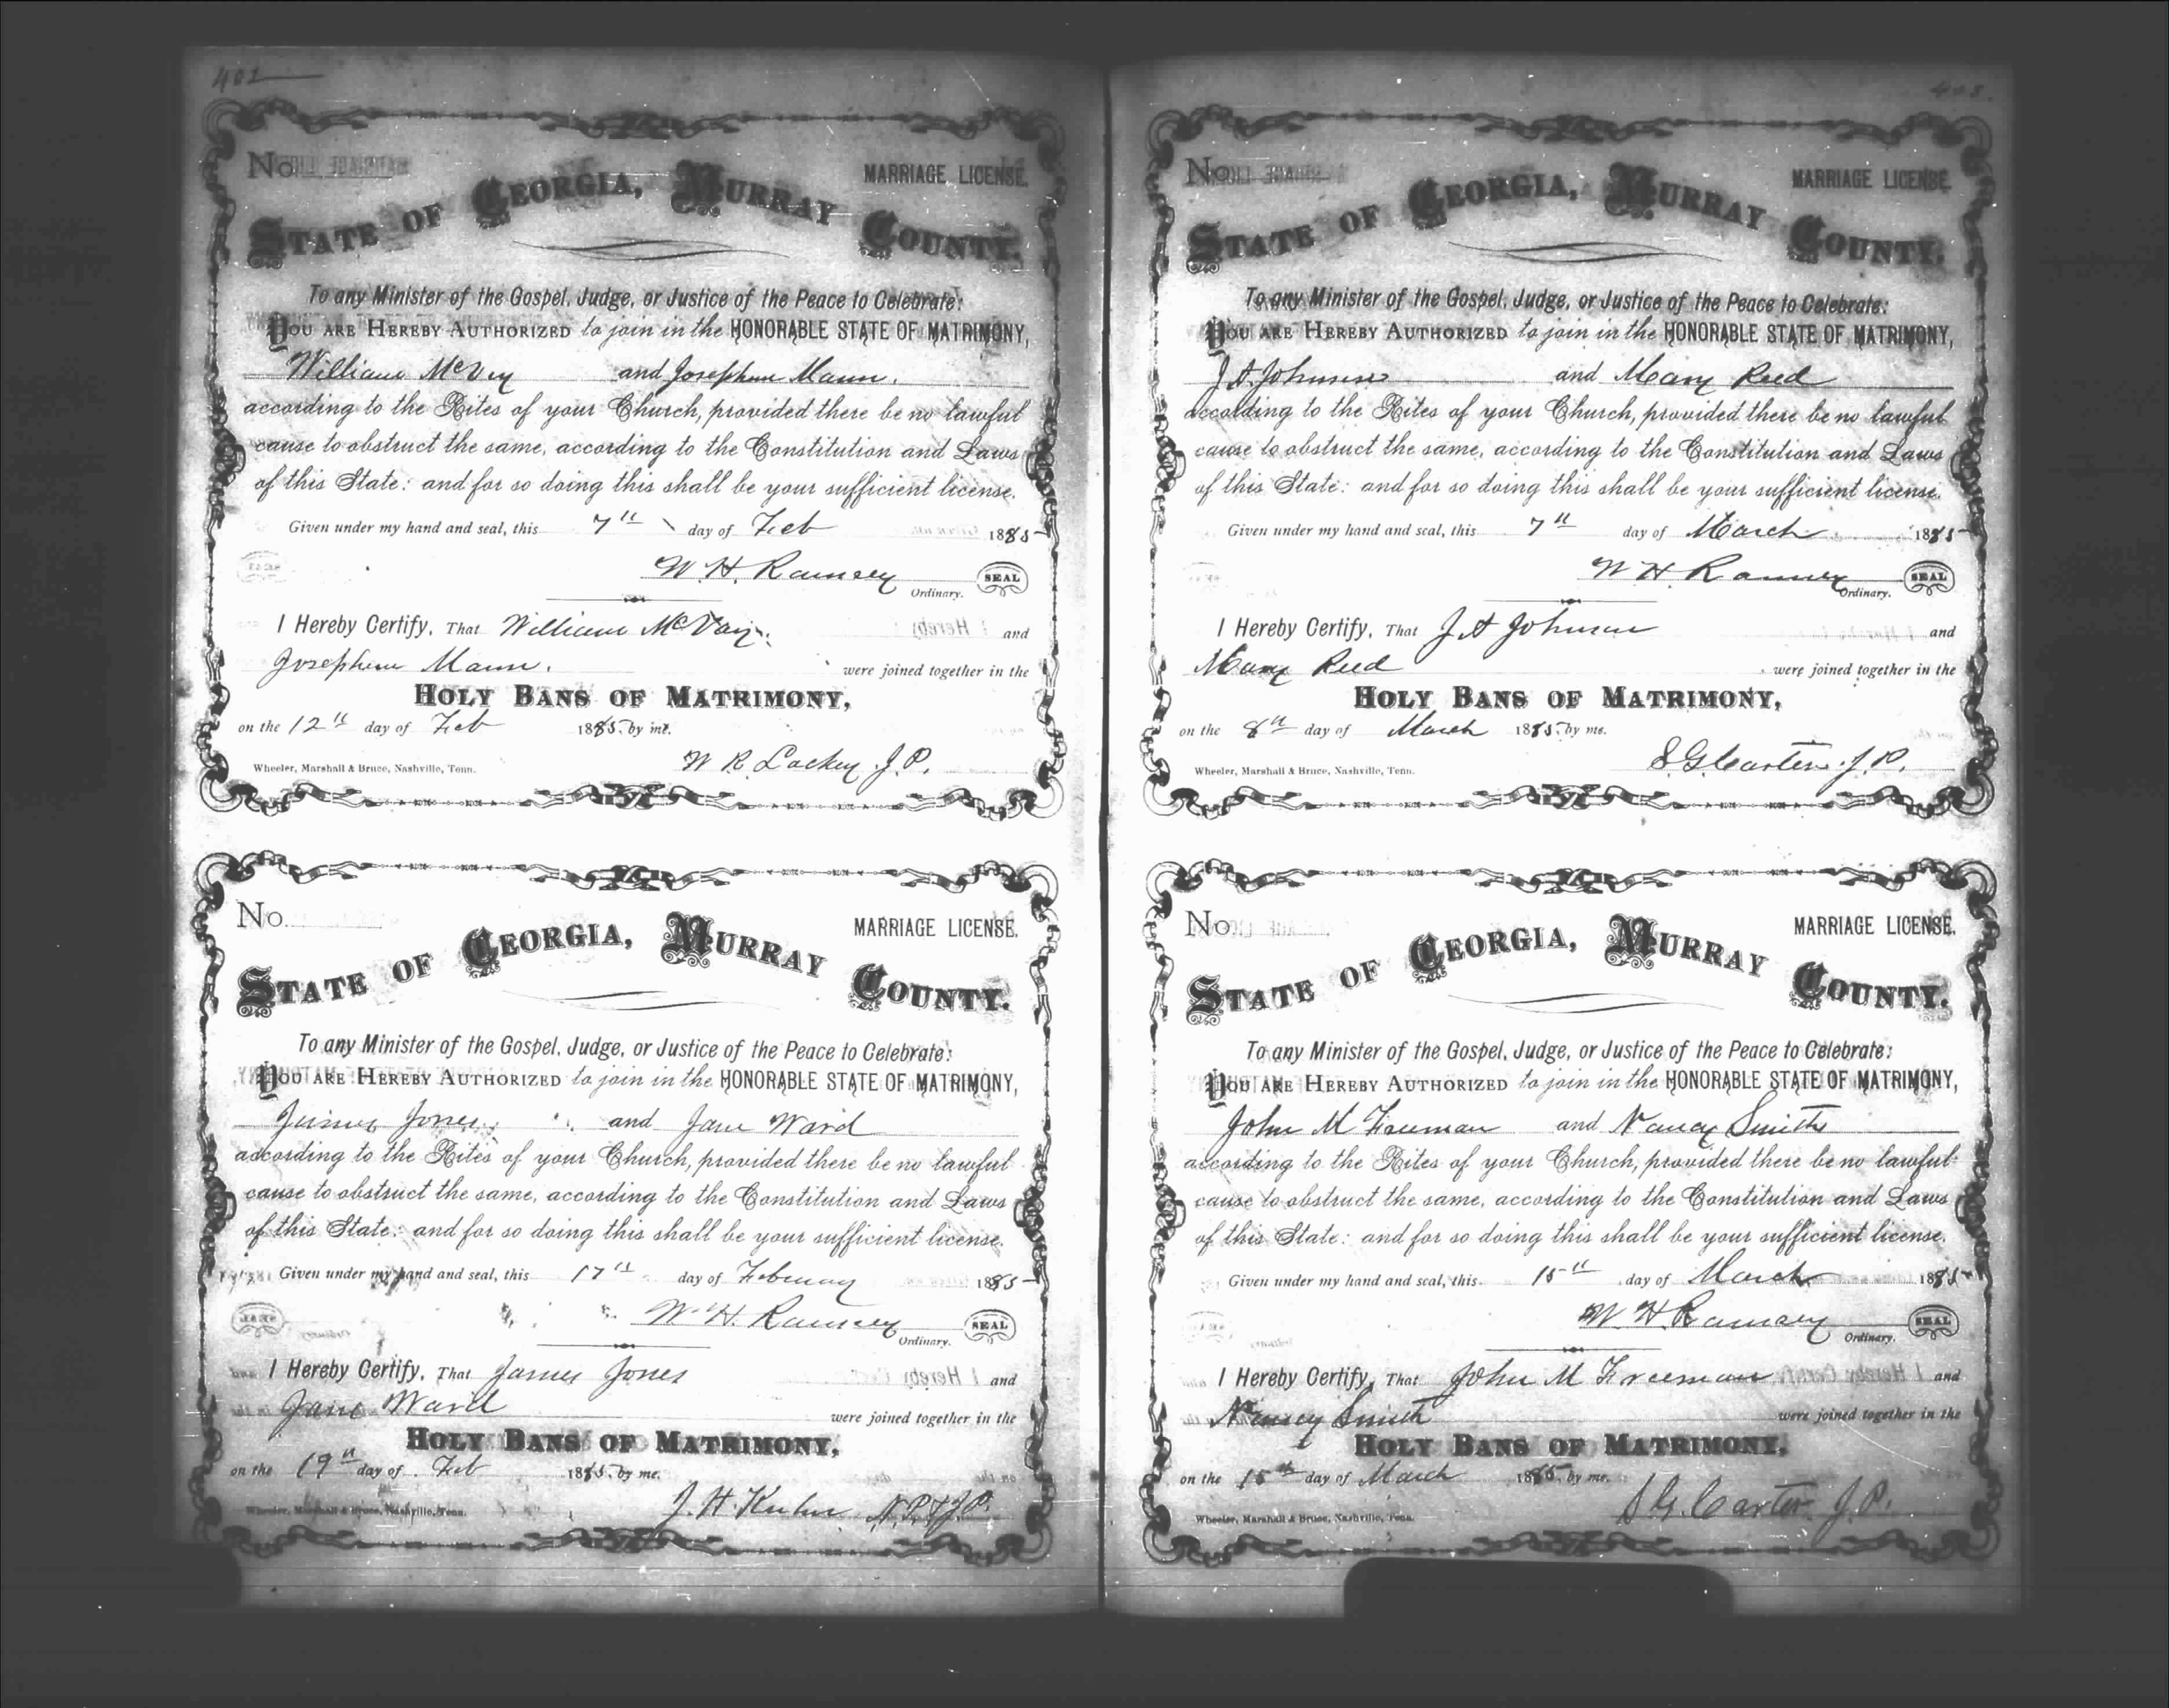 402
No. MARRIAGE LICENSE.
STATE OF GEORGIA, MURRAY COUNTY.
To any Minister of the Gospel, Judge, or Justice of the Peace to Celebrate:
YOU ARE HEREBY AUTHORIZED to join in the HONORABLE STATE OF MATRIMONY,
William McVey and Josephine Mann.
according to the Rites of your Church, provided there be no lawful
cause to obstruct the same, according to the Constitution and Laws
of this State: and for so doing this shall be your sufficient license.
Given under my hand and seal, this 7th day of Feb 1885
W. H. Ramsey SEAL
Ordinary.
I Hereby Certify, That William McVay. and
Josephine Mann. were joined together in the
HOLY BANS OF MATRIMONY,
on the 12th day of Feb 1885, by me.
W R Lackey J. P.
Wheeler, Marshall & Bruce, Nashville, Tenn.
No. MARRIAGE LICENSE.
STATE OF GEORGIA, MURRAY COUNTY.
To any Minister of the Gospel, Judge, or Justice of the Peace to Celebrate:
YOU ARE HEREBY AUTHORIZED to join in the HONORABLE STATE OF MATRIMONY,
James Jones and Jane Ward
according to the Rites of your Church, provided there be no lawful
cause to obstruct the same, according to the Constitution and Laws
of this State: and for so doing this shall be your sufficient license.
Given under my hand and seal, this 17th day of February 1885
W. H. Ramsey SEAL
Ordinary.
I Hereby Certify, That James Jones and
Jane Ward were joined together in the
HOLY BANS OF MATRIMONY,
on the 19th day of Feb 1885, by me.
J. H. Kuhn N.P.&J.P.
Wheeler, Marshall & Bruce, Nashville, Tenn.
403
No. MARRIAGE LICENSE.
STATE OF GEORGIA, MURRAY COUNTY.
To any Minister of the Gospel, Judge, or Justice of the Peace to Celebrate:
YOU ARE HEREBY AUTHORIZED to join in the HONORABLE STATE OF MATRIMONY,
J A Johnson and Mary Reed
according to the Rites of your Church, provided there be no lawful
cause to obstruct the same, according to the Constitution and Laws
of this State: and for so doing this shall be your sufficient license.
Given under my hand and seal, this 7th day of March 1885
W H Ramsey SEAL
Ordinary.
I Hereby Certify, That J A Johnson and
Mary Reed were joined together in the
HOLY BANS OF MATRIMONY,
on the 8th day of March 1885, by me.
S. G. Carter. J. P.
Wheeler, Marshall & Bruce, Nashville, Tenn.
No. MARRIAGE LICENSE.
STATE OF GEORGIA, MURRAY COUNTY.
To any Minister of the Gospel, Judge, or Justice of the Peace to Celebrate:
YOU ARE HEREBY AUTHORIZED to join in the HONORABLE STATE OF MATRIMONY,
John M Freeman and Nancy Smith
according to the Rites of your Church, provided there be no lawful
cause to obstruct the same, according to the Constitution and Laws
of this State: and for so doing this shall be your sufficient license.
Given under my hand and seal, this 15th day of March 1885
W. H. Ramsey SEAL
Ordinary.
I Hereby Certify, That John M Freeman and
Nancy Smith were joined together in the
HOLY BANS OF MATRIMONY,
on the 15th day of March 1885, by me.
S. G. Carter. J. P.
Wheeler, Marshall & Bruce, Nashville, Tenn.